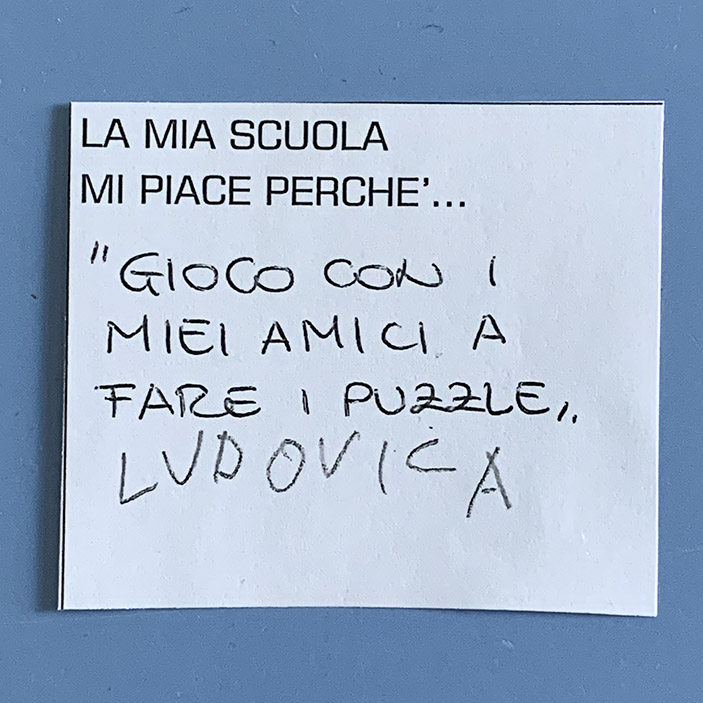 LA MIA SCUOLA
MI PIACE PERCHE'...
"GIOCO CON I
MIEI AMICI A
FARE I PUZZLE,,
LUDOVICA